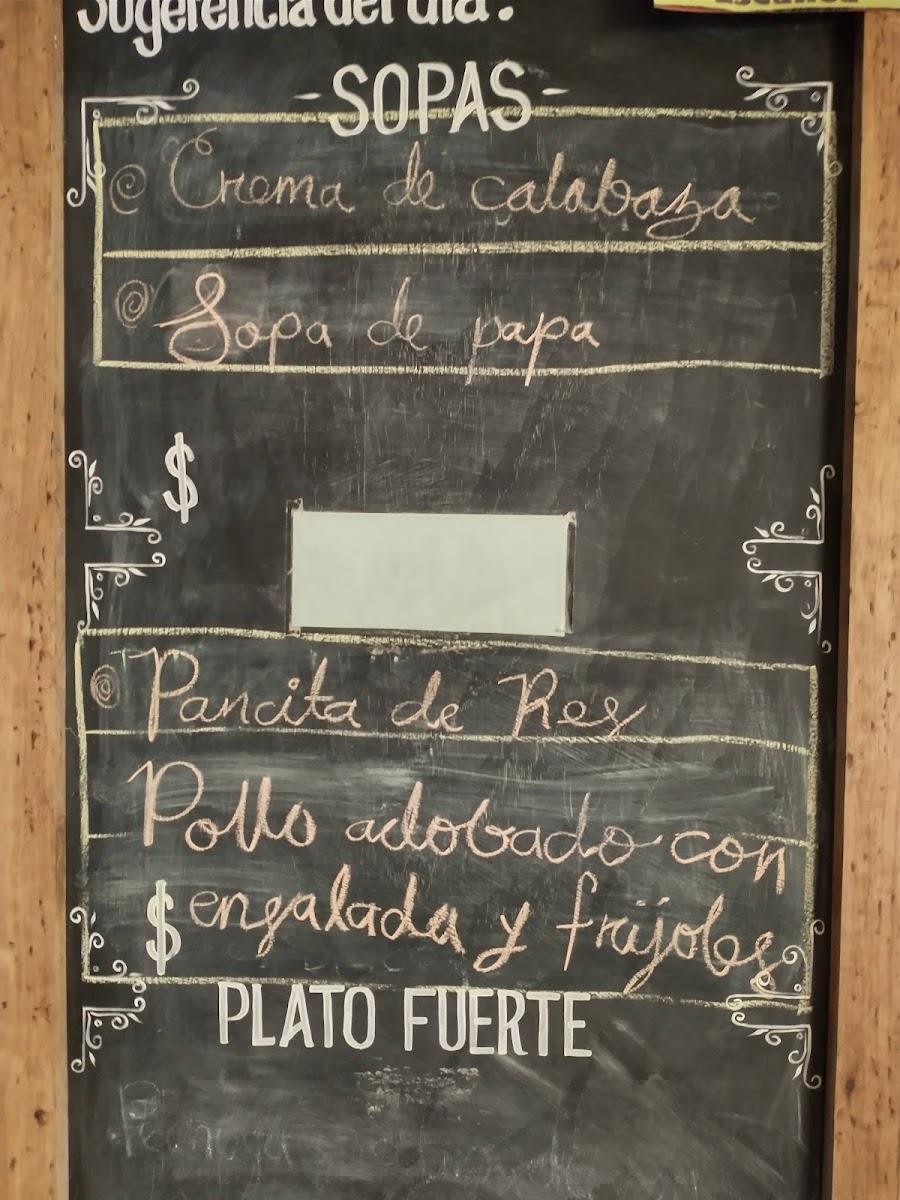 Sugerencia del día:
- SOPAS -
Crema de calabaza
Sopa de papa
$
Pancita de Res
Pollo adobado con
$ engalada y frijoles
PLATO FUERTE